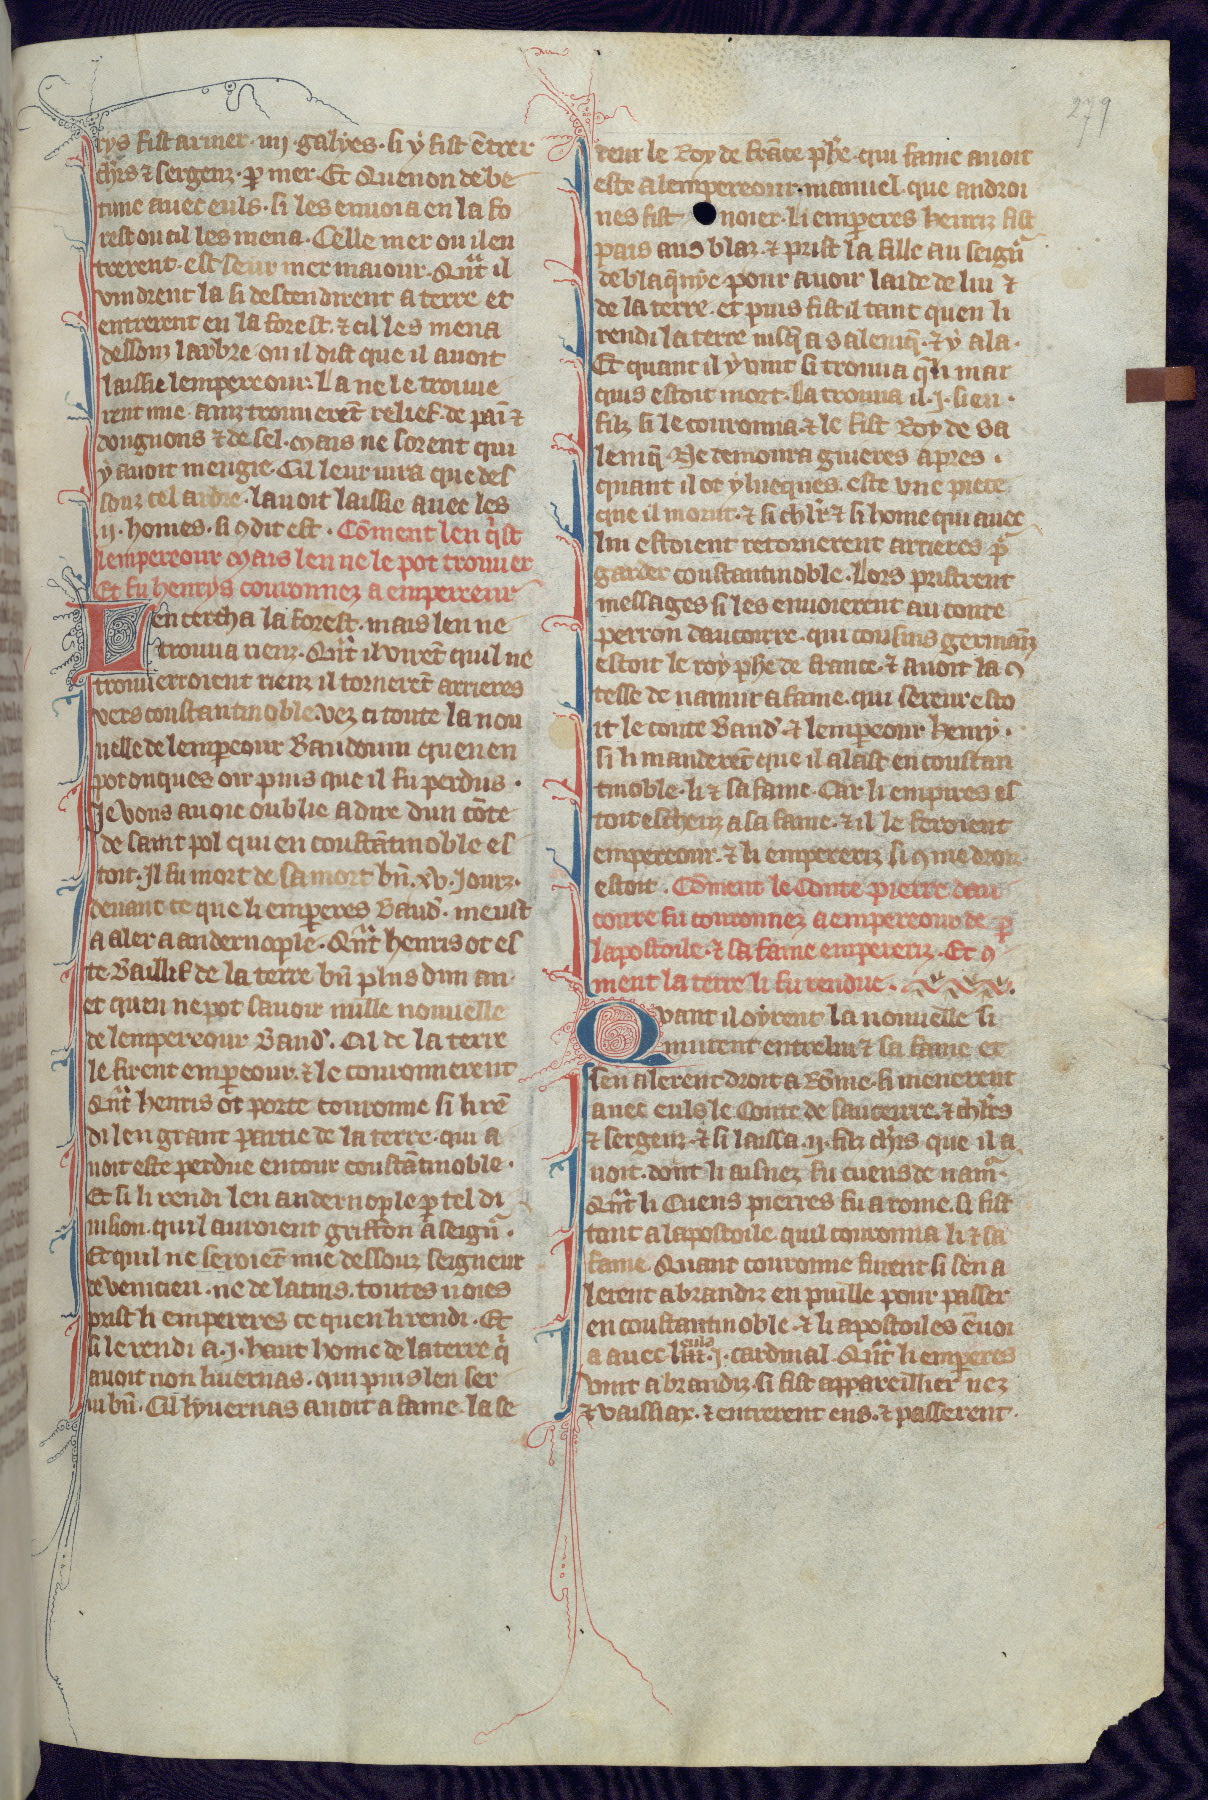 279
rys fist armer .iiij. galyes. si y fist ētrer
chr̄s ⁊ sergenz. ꝑ mer. Et Quenon de be
tune auec euls. si les enuoia en la fo
rest ou cil les mena. Celle mer ou il en
trerent. est seur mer maiour. Qn̄t il
vindrent la si descendirent a terre et
entrerent en la forest. ⁊ cil les mena
dessouz larbre ou il dist que il auoit
laissie lempereour. La ne le trouue
rent mie. ainz trouuerēt relief de pain ⁊
doignons ⁊ de sel. Mais ne sorent qui
y auoit mengie. Cil leur iura que des
souz cel arbre. lauoit laissie auec les
.ij. homes. si ꝯ dit est. Cōment len q̄ist
lempereour Mais len ne le pot trouuer
Et fu henrys couronnez a empereeur
Len cercha la forest. mais len ne
trouua rienz. Qn̄t il virēt quil ne
trouuerroient rienz il tornerēt arrieres
vers constantinoble. vez ci toute la nou
uelle de lempeour Baudouin quen en
pot onques oir puis que il fu perdus.
Je vous auoie oublie a dire dun cōte
de saint pol qui en constātinoble es
toit. Il fu mort de sa mort bn̄ .xv. Jourz.
deuant ce que li emꝑeres Baud'. meust
a aler a andernople. Qn̄t henris ot es
te Baillif de la terre bn̄ plus dun an.
et quen ne pot sauoir nulle nouuelle
de lempereour Baud'. Cil de la terre
le firent empeour. ⁊ le couronnerent
Qn̄t henris ot porte couronne si li rē
di len grant partie de la terre. qui a
uoit este perdue entour constātinoble.
Et si li rendi len andernople ꝑ tel di
uision. quil auroient griffon a seigr̄.
Et quil ne seroiēt mie dessouz seigneur
de venicien. ne de latins. toutes uoies
prist li empereres ce quen li rendi. Et
si le rendi a .j. haut home de la terre q̄i
auoit non liuernas. qui puis len ser
ui bn̄. Cil lyuernas auoit a fame la se
reur le Roy de frāce phe. qui fame auoit
este a lempereour. manuel. que androi
nes fist noier. Li emperes henriz fist
pais aus blaz. ⁊ prist la fille au seigr̄
de blaq̄nye. pour auoir laide de lui ⁊
de la terre. et puis fist il tant quen li
rendi la terre iusq̄ a saleniq̄. ⁊ y ala.
Et quant il y vint si trouua q̄ li mar
quis estoit mort. La trouua il .j. sien.
filz si le couronna. ⁊ le fist Roy de sa
leniq̄. Ne demoura guieres apres.
quant il ot ylueques. este vne piece
que il morut. ⁊ si chlr̄ ⁊ si home qui auec
lui estoient retornerent arrieres pꝰ
garder coustantinoble. Lors pristrent
messages si les enuoierent au conte
perron daucoirre. qui cousins germainz
estoit le roy phe de france. ⁊ auoit la ꝯ
tesse de namur a fame. qui sereur esto
it le conte Baud'. ⁊ lempeour henry.
si li manderēt que il alast en coustan
tinoble. li ⁊ sa fame. Car li empires es
toit escheuz a sa fame. ⁊ il le feroient
empereour. ⁊ li empereriz si ꝯme droiz
estoit. Cōment le Conte pierre dau
coirre fu couronnez a empereour de ꝑ
lapostoile. ⁊ sa fame empereriz. Et ꝯ
ment la terre li fu rendue.
Quant il oyrent la nouuelle si
murent entre lui ⁊ sa fame et
sen alerent droit a Rōme. si menerent
auec euls le Conte de sanceurre. ⁊ chlr̄s
⁊ sergenz. ⁊ si laissa .ij. filz chr̄s que il a
uoit. dont li aisnez fu cuens de namꝰ.
Qn̄t li Cuens pierres fu a rome. si fist
tant a lapostoile. quil couronna li ⁊ sa
fame. Quant couronne furent si sen a
lerent a brandiz en puille pour passer
en coustantinoble. ⁊ li apostoiles ēuoi
a auec euls .j. cardinal. Qn̄t li emperes
vint a brandiz. si fist appareillier nez
⁊ vaissiax. ⁊ entrerent ens. ⁊ passerent.